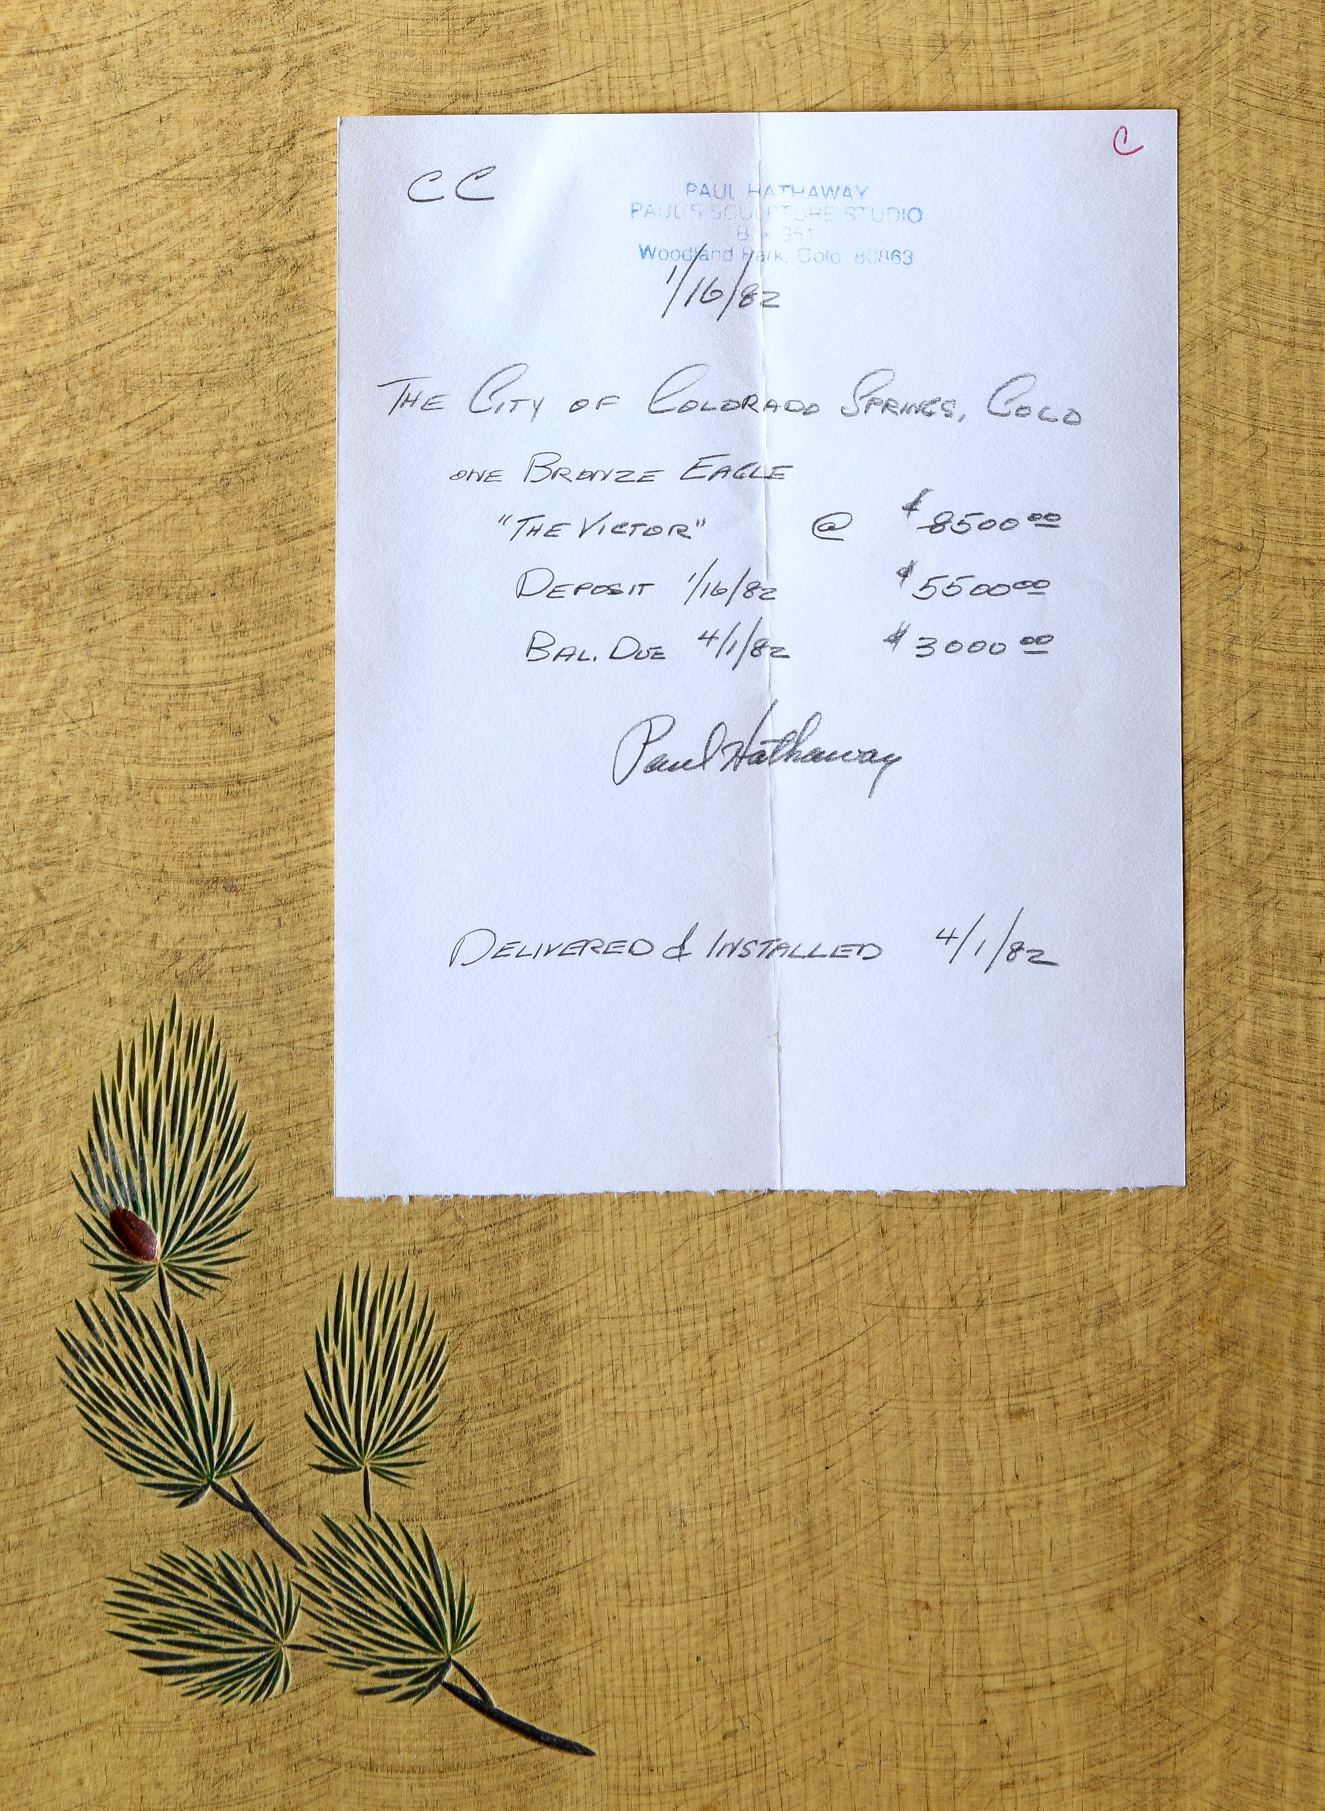 C
CC
PAUL HATHAWAY
PAUL'S SCULPTURE STUDIO
Box 351
Woodland Park, Colo 80863
1/16/82
THE CITY OF COLORADO SPRINGS, COLO
ONE BRONZE EAGLE
"THE VICTOR" @ $8500.00
DEPOSIT 1/16/82 $5500.00
BAL. DUE 4/1/82 $3000.00
Paul Hathaway
DELIVERED & INSTALLED 4/1/82